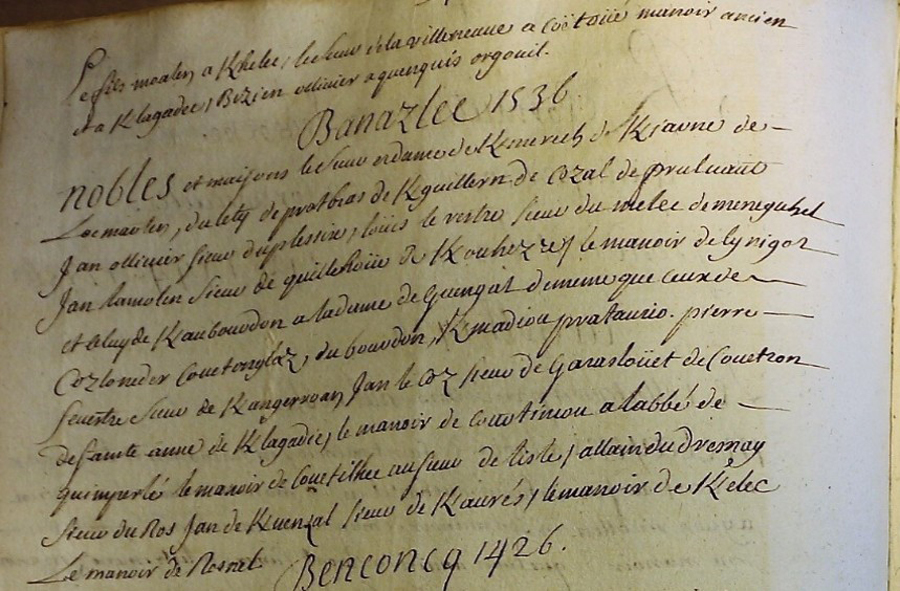 Le fils moalen a Khelec, le sieur de la villeneuve a Coëtoüé manoir ancien
et a Klagadec, Bizien ollivier a quenquis orgouil.
Banazlec 1536.
nobles et maisons le sieur et dame de Kmerech de Kjaune de
Locmarlen, du lety de protbras de Kguillern de Cozal de prulvault
Jan ollivier sieur du plessixe, loüis le vestre sieur du melec de meneguhel
Jan lamolen sieur de quilehoüe de Kouhezrej le manoir de lynigoz
et celuy de Kaubouedon a la dame de Guengat de meme que ceux de
Cozlonider Couetanglaz, du bouedon, Kmadiou prataurio. pierre
fevestre sieur de Kangervoan, Jan le Coz sieur de Garaslouët de Couetron
de sainte anne de Klagadic, le manoir de couetiniou a labbé de
quimperlé le manoir de Couetilhec au sieur de lisle, allain du dresnay
sieur du Ros Jan de Kuenzal sieur de Kaurés, le manoir de Kelec
Le manoir de Rosnet.
Benconcq 1426.